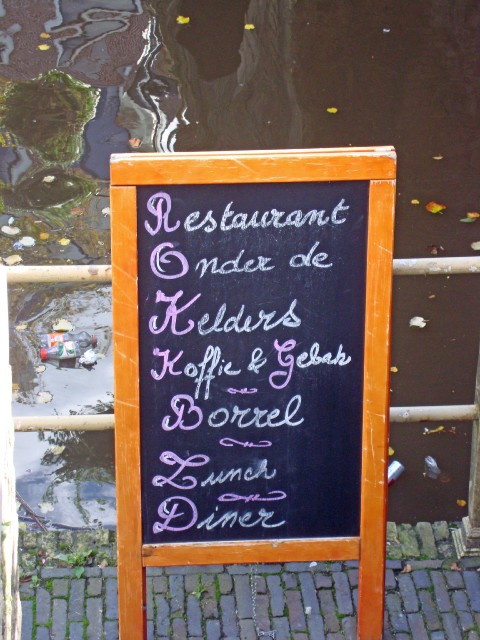 Restaurant
Onder de
Kelders
Koffie & Gebak
Borrel
Lunch
Diner